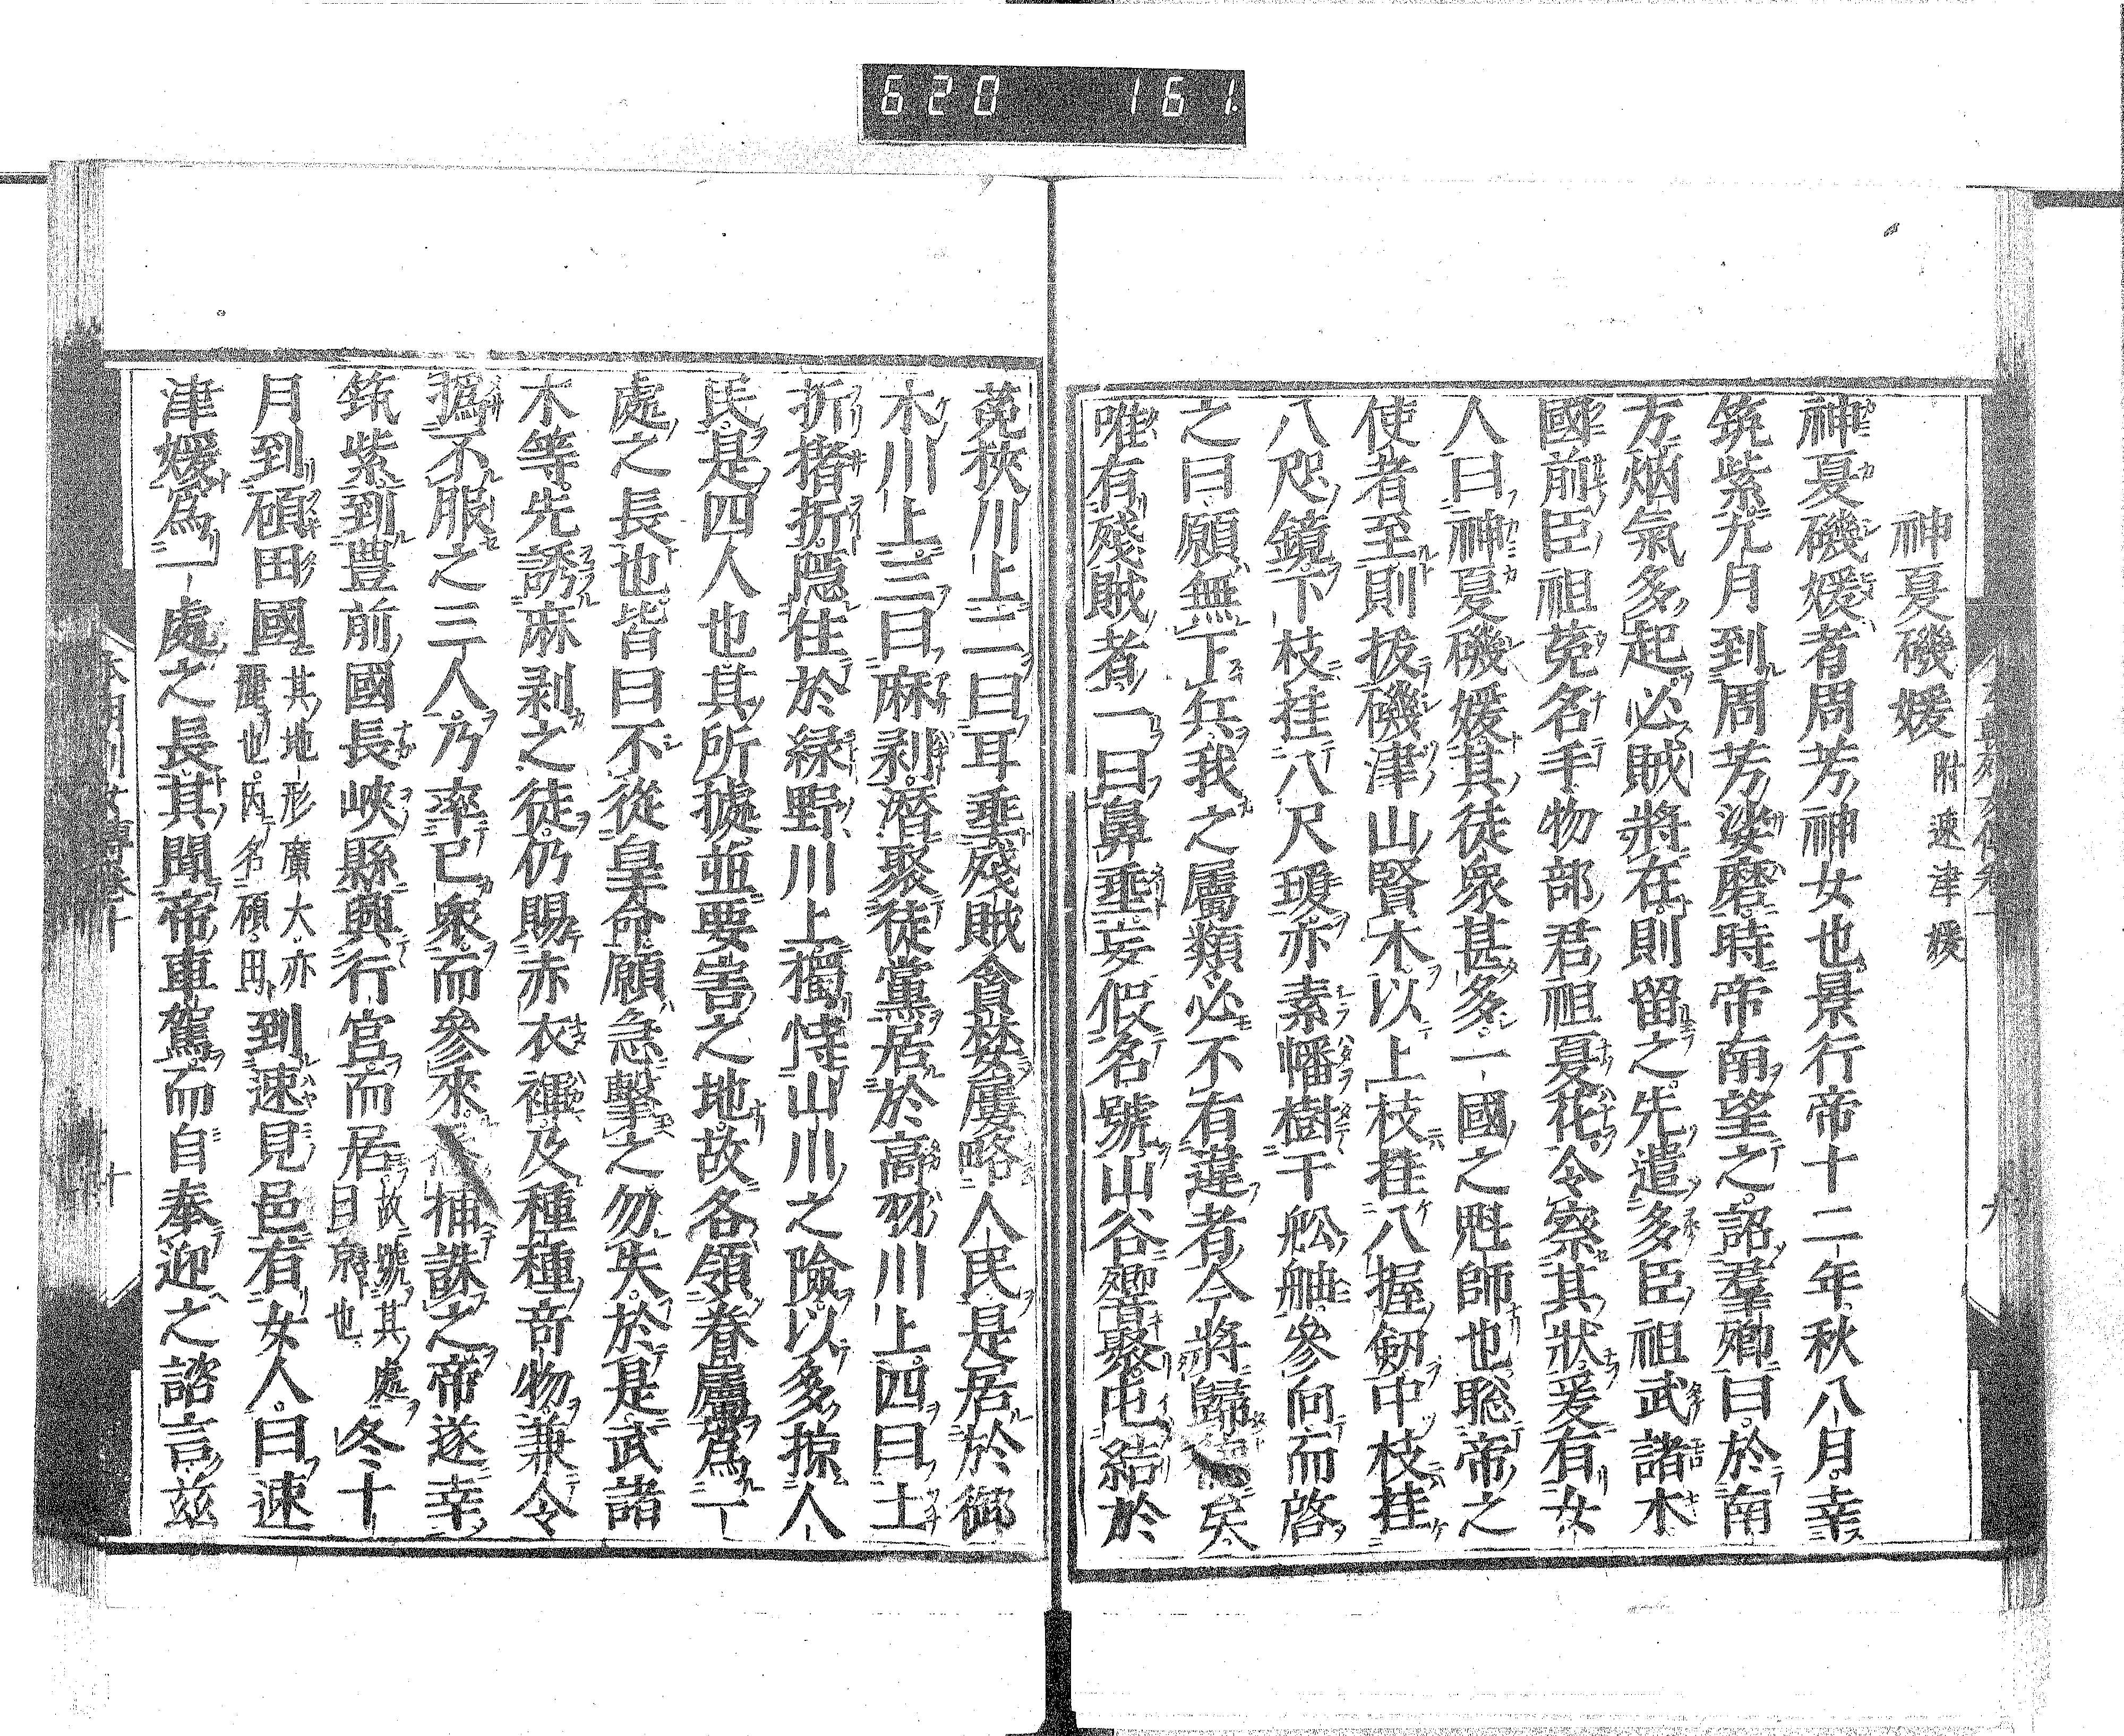 620 161
神夏磯媛 附速津媛
神夏磯媛者周芳神女也景行帝十二年秋八月幸
筑紫九月到周芳娑磨時帝南望之詔羣卿曰於南
方烟氣多起必賊將在則留之先遣多臣祖武諸木
國前臣祖菟名手物部君祖夏花令察其狀爰有女
人曰神夏磯媛其徒衆甚多一國之魁帥也聆帝之
使者至則拔磯津山賢木以上枝挂八握劒中枝挂
八咫鏡下枝挂八尺瓊亦素幡樹于舩舳參向而啓
之曰願無下兵我之屬類必不有違者今將歸矣
唯有殘賊者一曰鼻垂妄假名號山谷響聚屯結於
菟狹川上二曰耳垂殘賊貪婪屢略人民是居於御
木川上三曰麻剥潛聚徒黨居於高羽川上四曰土
折猪折隱住於緑野川上獨恃山川之險以多掠人
民是四人也其所據並要害之地故各領眷屬爲一
處之長也皆曰不從皇命願急擊之勿失於是武諸
木等先誘麻剥之徒仍賜赤衣褌及種種奇物兼令
撝不服之三人乃率已衆而參來捕誅之帝遂幸
筑紫到豊前國長峽縣興行宮而居故號其處曰京也冬十
月到碩田國其地形廣大亦麗也因名碩田到速見邑有女人曰速
津媛爲一處之長其聞帝車駕而自奉迎之諮言玆
本朝列女傳卷十 十